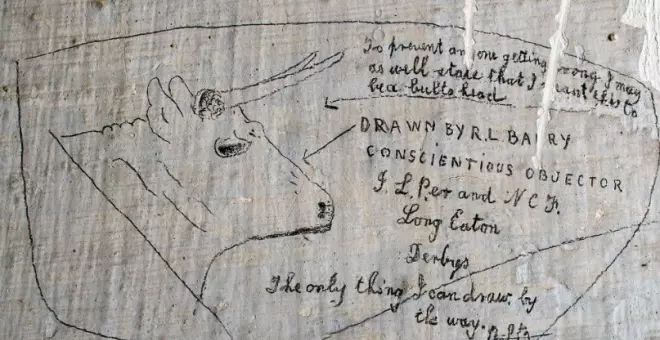 To prevent anyone getting wrong I may
as well state that I want this to
be a bulls head
DRAWN BY R.L. BARRY
CONSCIENTIOUS OBJECTOR
I. L. P.er and N.C.F.
Long Eaton
Derbys
The only thing I can draw, by
the way.